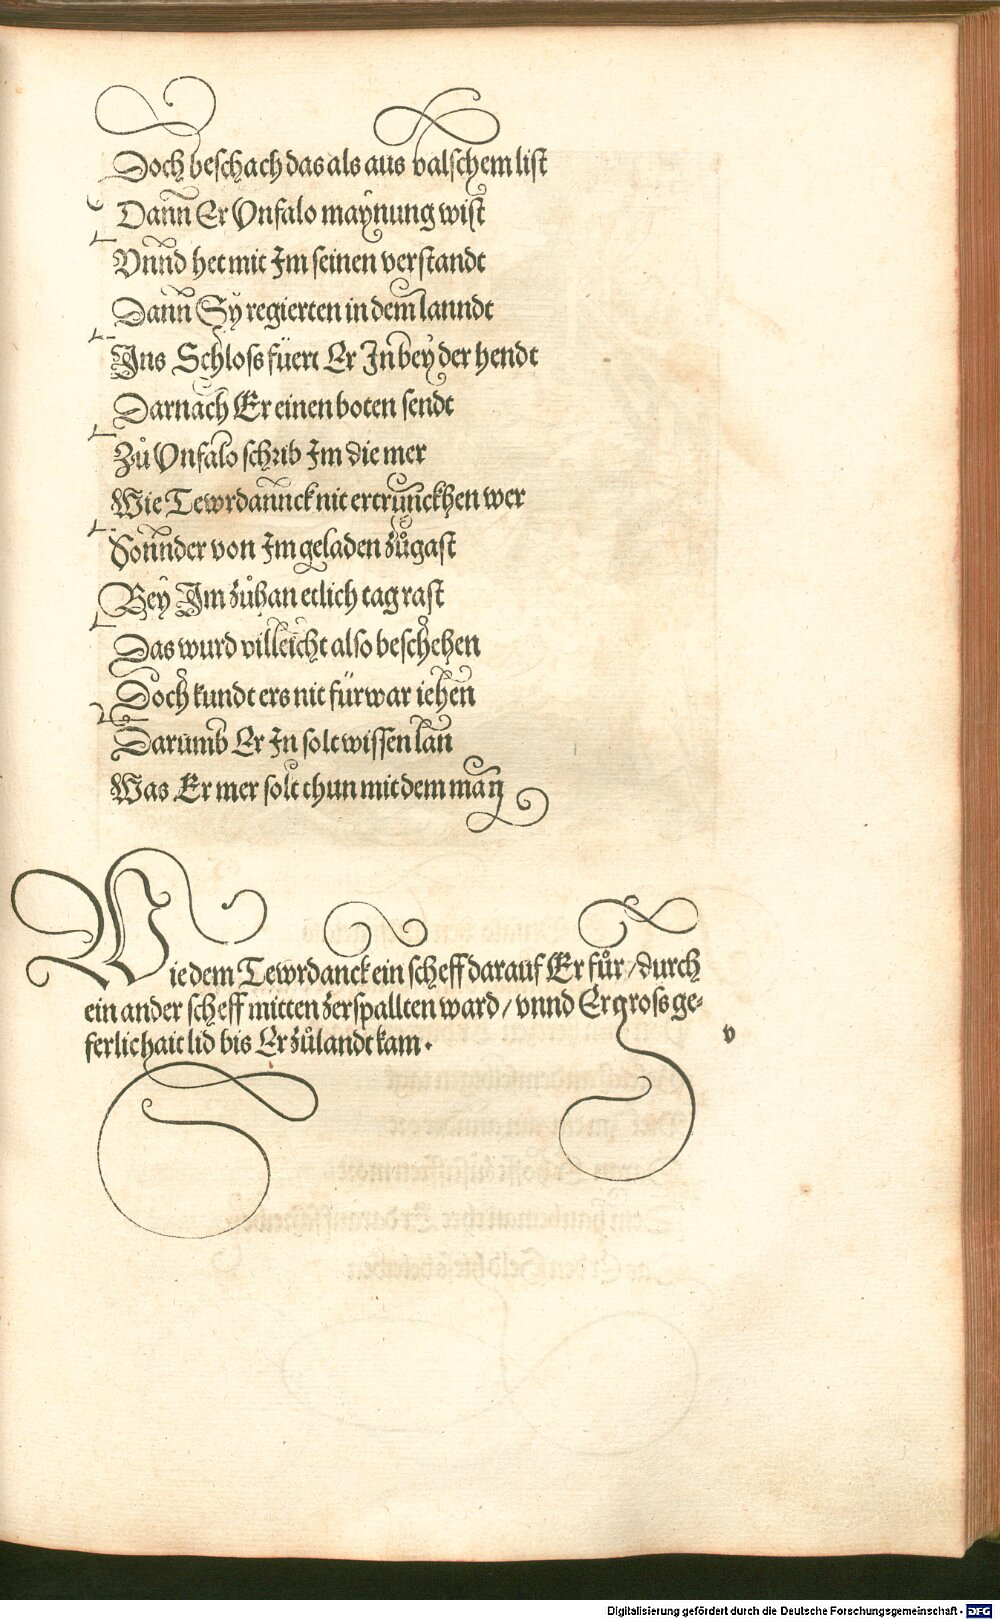 Doch beschach das als aus valschem list
Dann Er Vnfalo maynung wist
Vnnd het mit Im seinen verstandt
Dann Sÿ regierten in dem lanndt
Ins Schloss füert Er In bey der hendt
Darnach Er einen boten sendt
Zů Vnfalo schrib Im die mer
Wie Tewrdannck nit ertrunckhen wer
Sonnder von Im geladen zů gast
Bey Im zůhan etlich tag rast
Das wurd villeicht also beschehen
Doch kundt ers nit fürwar iehen
Darumb Er In solt wissen lan
Was Er mer solt thun mit dem man
Wie dem Tewrdanck ein scheff darauf Er fůr / durch
ein ander scheff mitten zerspallten ward / vnnd Er gross ge-
ferlichait lid bis Er zů landt kam .
v
Digitalisierung gefördert durch die Deutsche Forschungsgemeinschaft - DFG